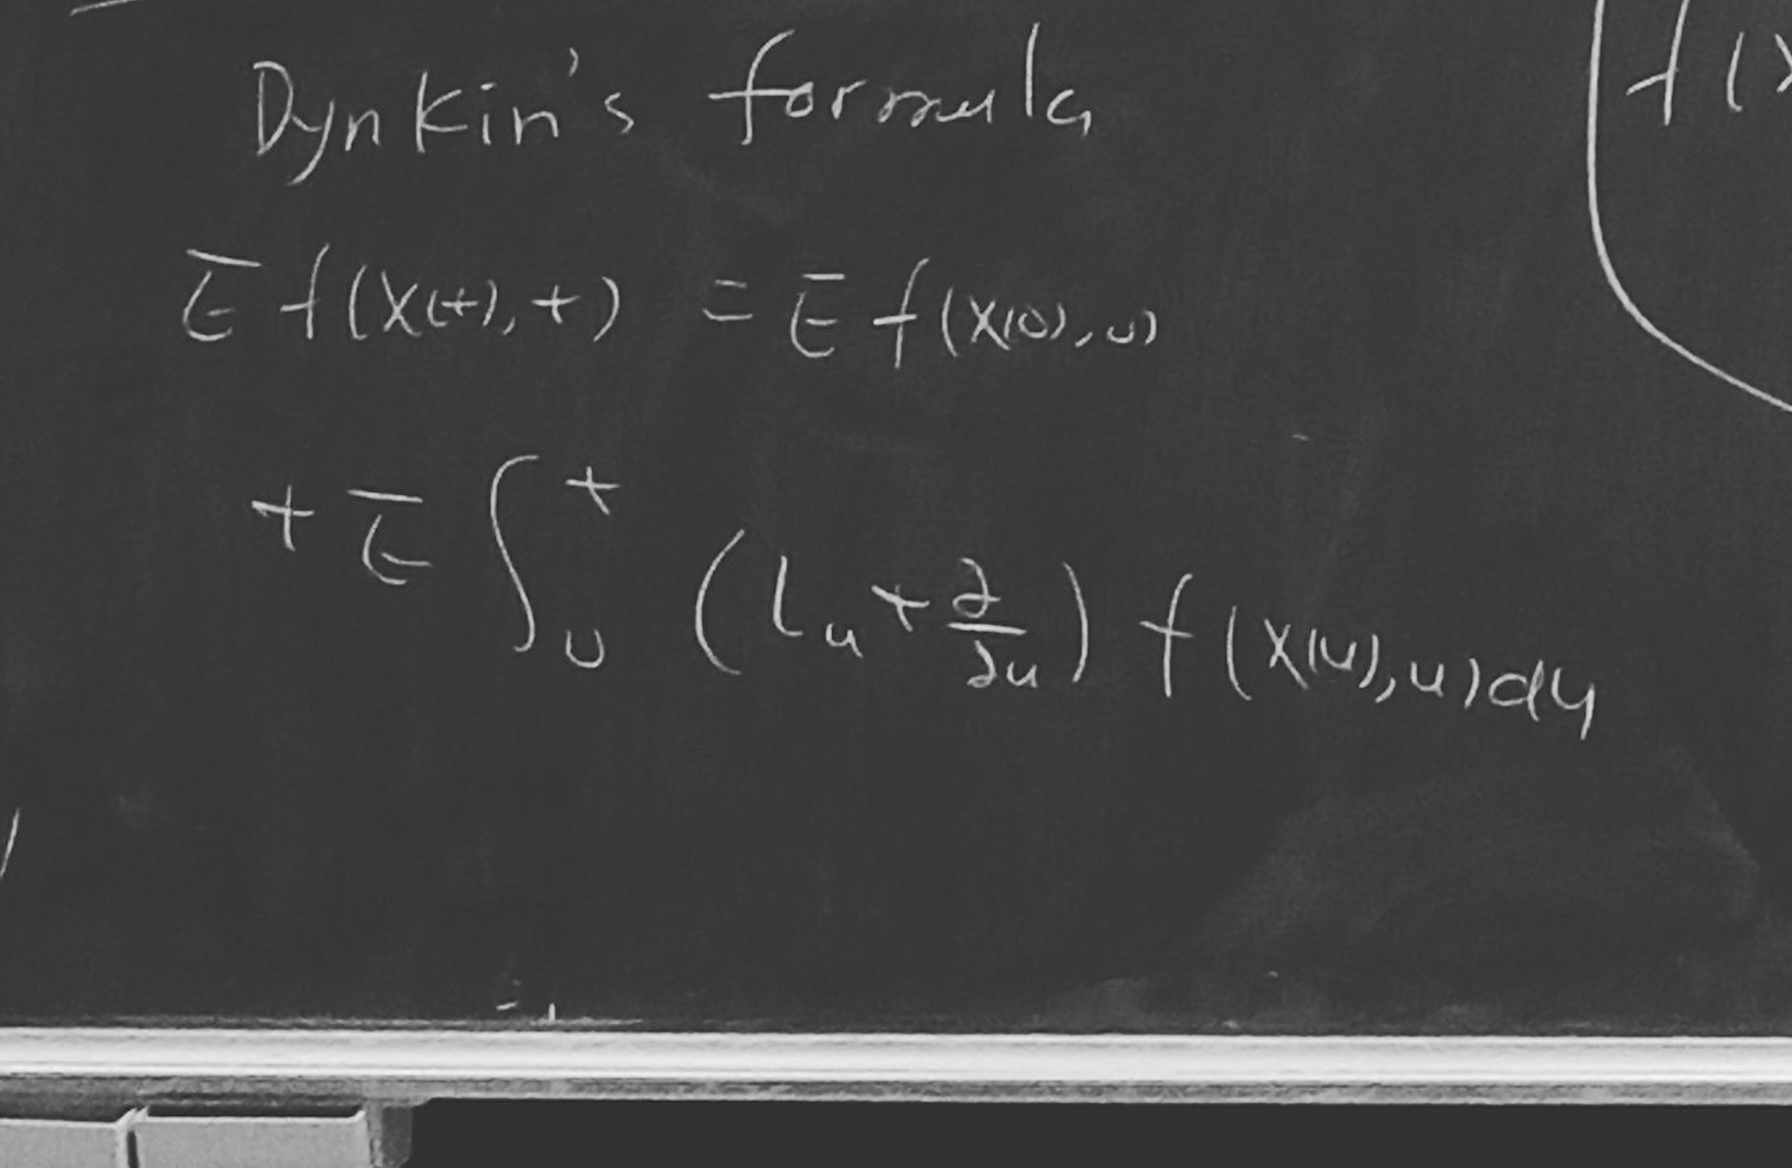 Dynkin's formula
E f(X(t), t) = E f(X(0), 0)
+ E ∫₀ᵗ (Lᵤ + ∂/∂u) f(X(u), u) du
f(x